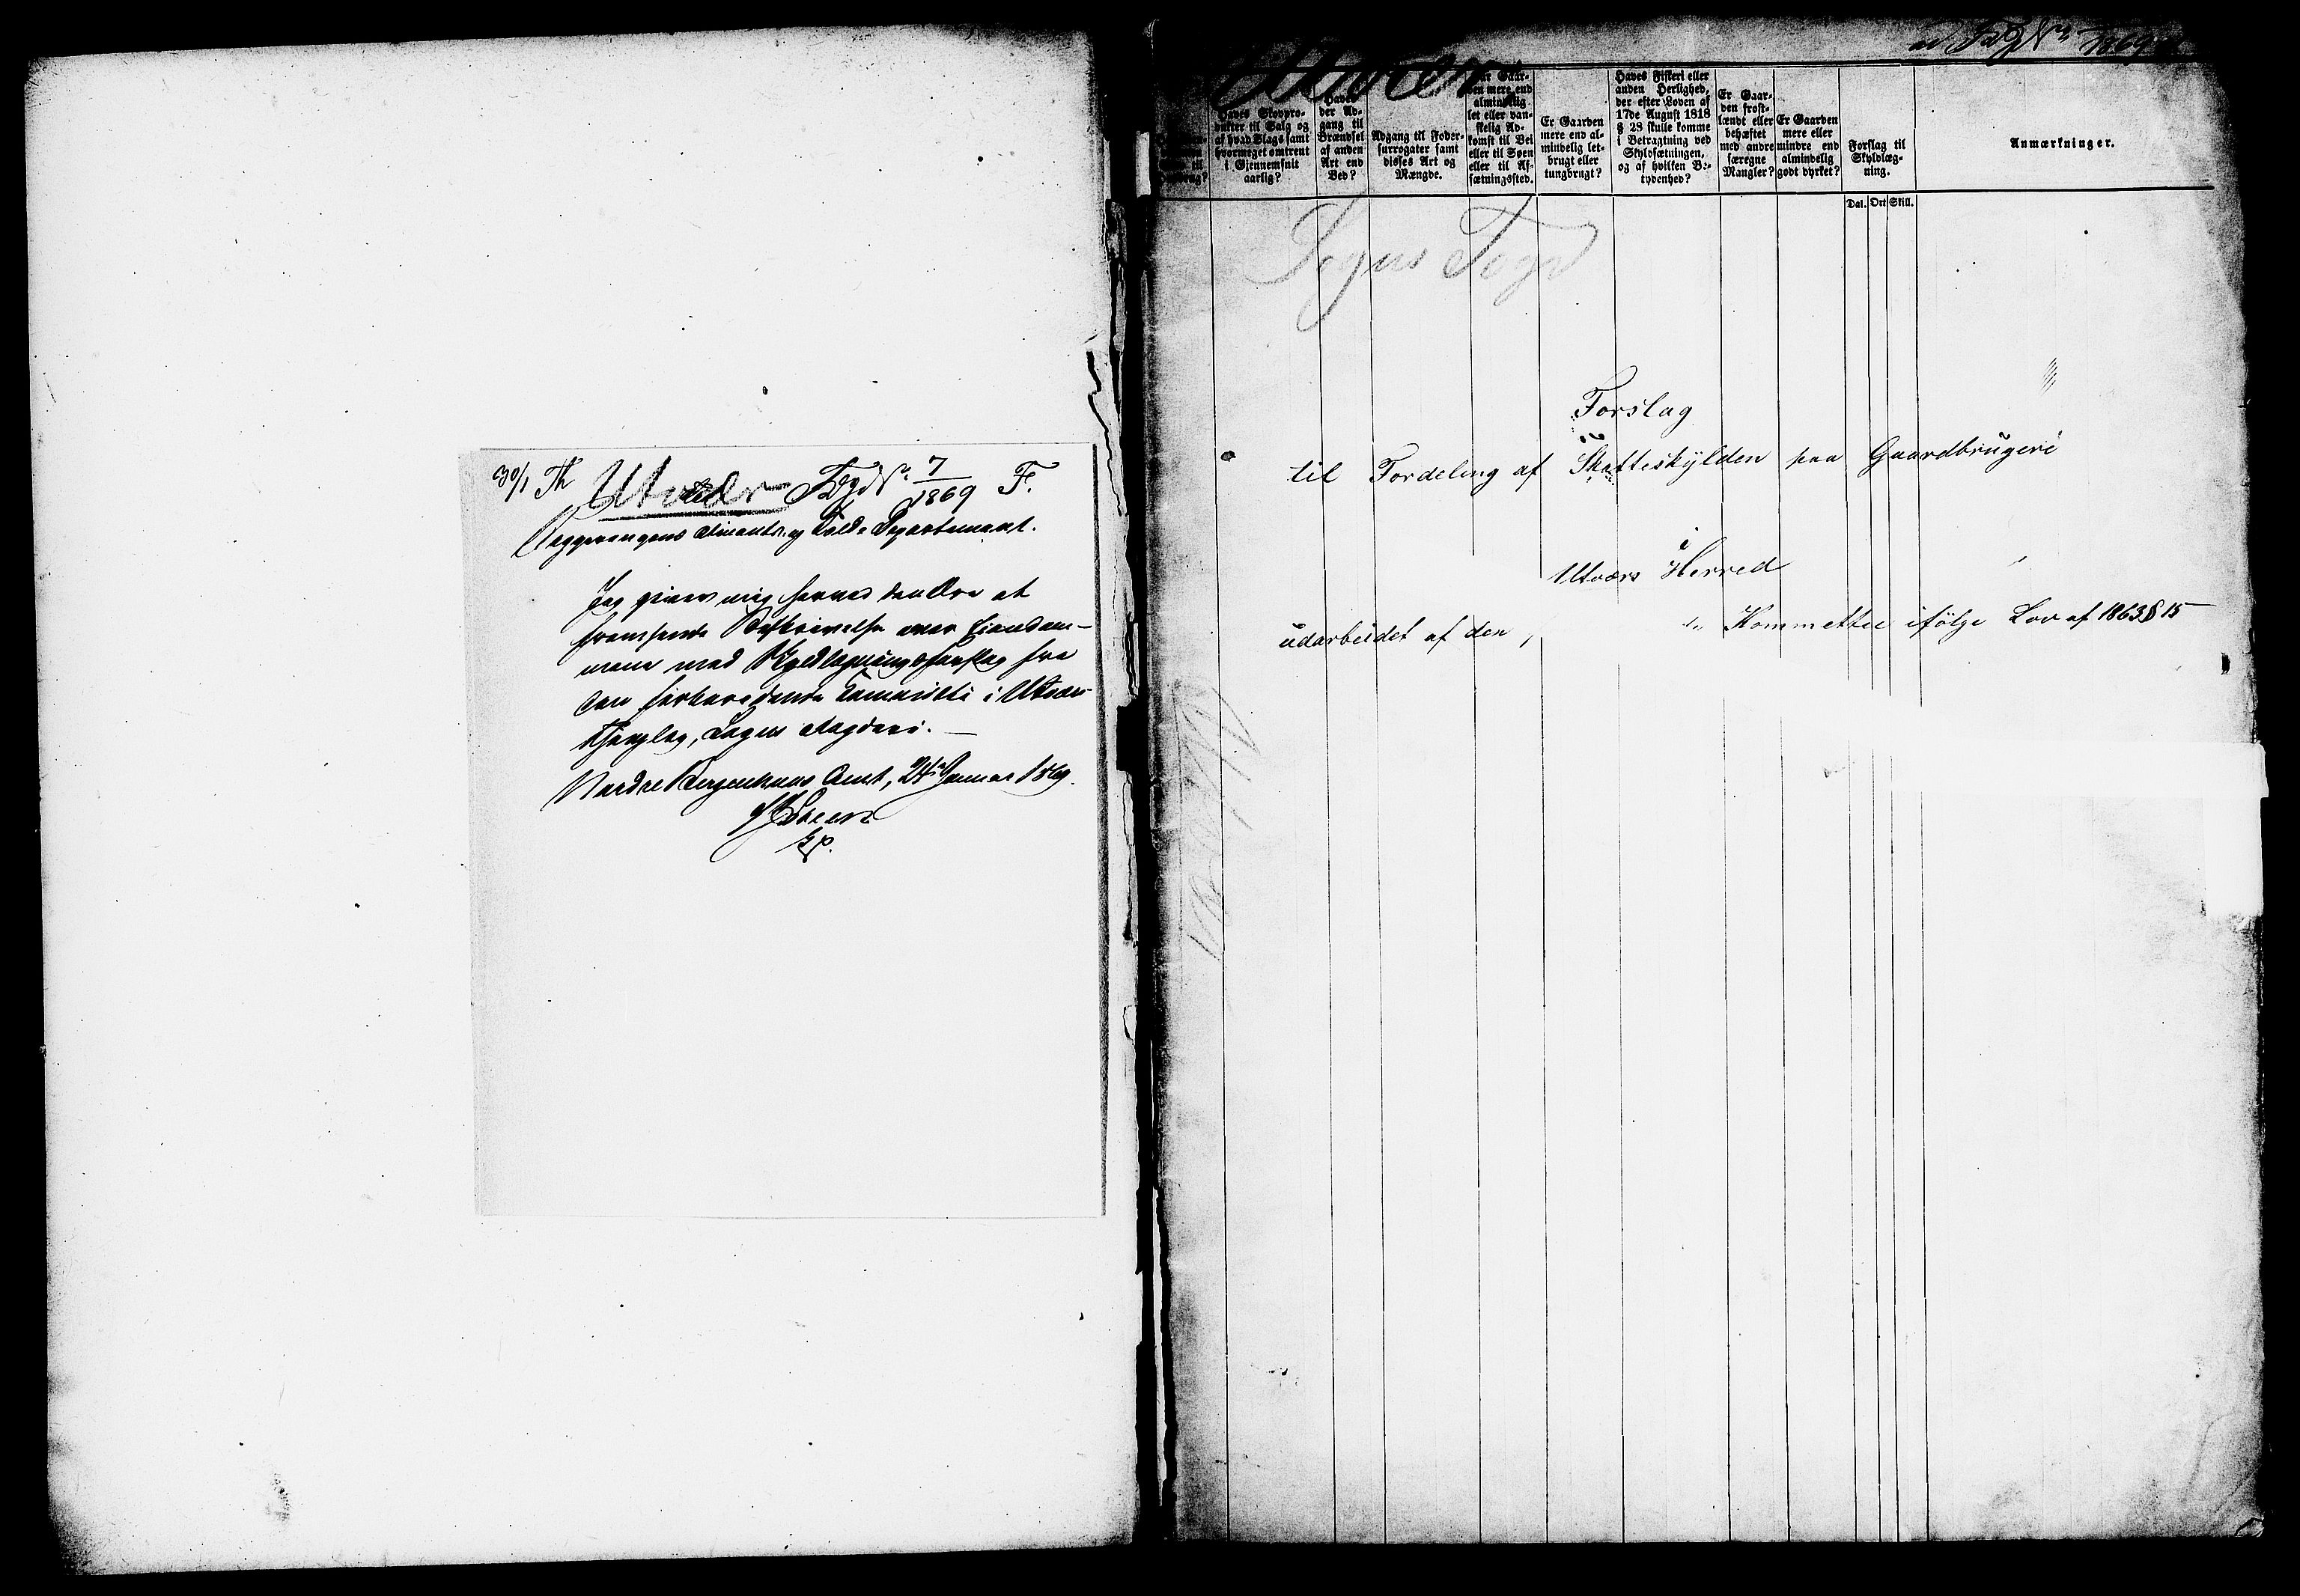 30/1 Th Utvær Fgd No 7/1869 F.
Reggjeringens Finants og Told-Departement.
Jeg giver mig herved den Ære at
fremsende Beskrivelse over Eiendom-
mene med Skyldlægningsforslag fra
den forberedende Committe i Utvær
Thinglag, Sogns Fogderi. —
Nordre Bergenhuus Amt, 24 Januar 1869.
ad No 1869
Utvær
til
Haves Skovpro-
dukter til Salg og
af hvad Slags samt
hvormeget omtrent
i Gjennemsnit
aarlig?
Haves
der Ad-
gang til
Brændsel
af anden
Art end
Ved?
Adgang til Foder-
surrogater samt
disses Art og
Mængde.
Er Gaar-
den mere end
almindelig
let eller van-
skelig Ad-
komst til Vei
eller til Søen
eller til Af-
sætningssted.
Er Gaarden
mere end al-
mindelig let-
brugt eller
tungbrugt?
Haves Fiskeri eller
anden Herlighed,
der efter Loven af
17de August 1818
§ 28 skulle komme
i Betragtning ved
Skyldsætningen,
og af hvilken Be-
tydenhed?
Er Gaar-
den frost-
lændt eller
behæftet
med andre
særegne
Mangler?
Er Gaarden
mere eller
mindre end
almindelig
godt dyrket?
Forslag til
Skyldlæg-
ning.
Anmærkninger.
Dal. Ort Skill.
Sogns Fogd
Forslag
til Fordeling af Skatteskylden paa Gaardbrugene
i
Utværs Herred
udarbeidet af den Kommettee ifölge Lov af 1863 § 15